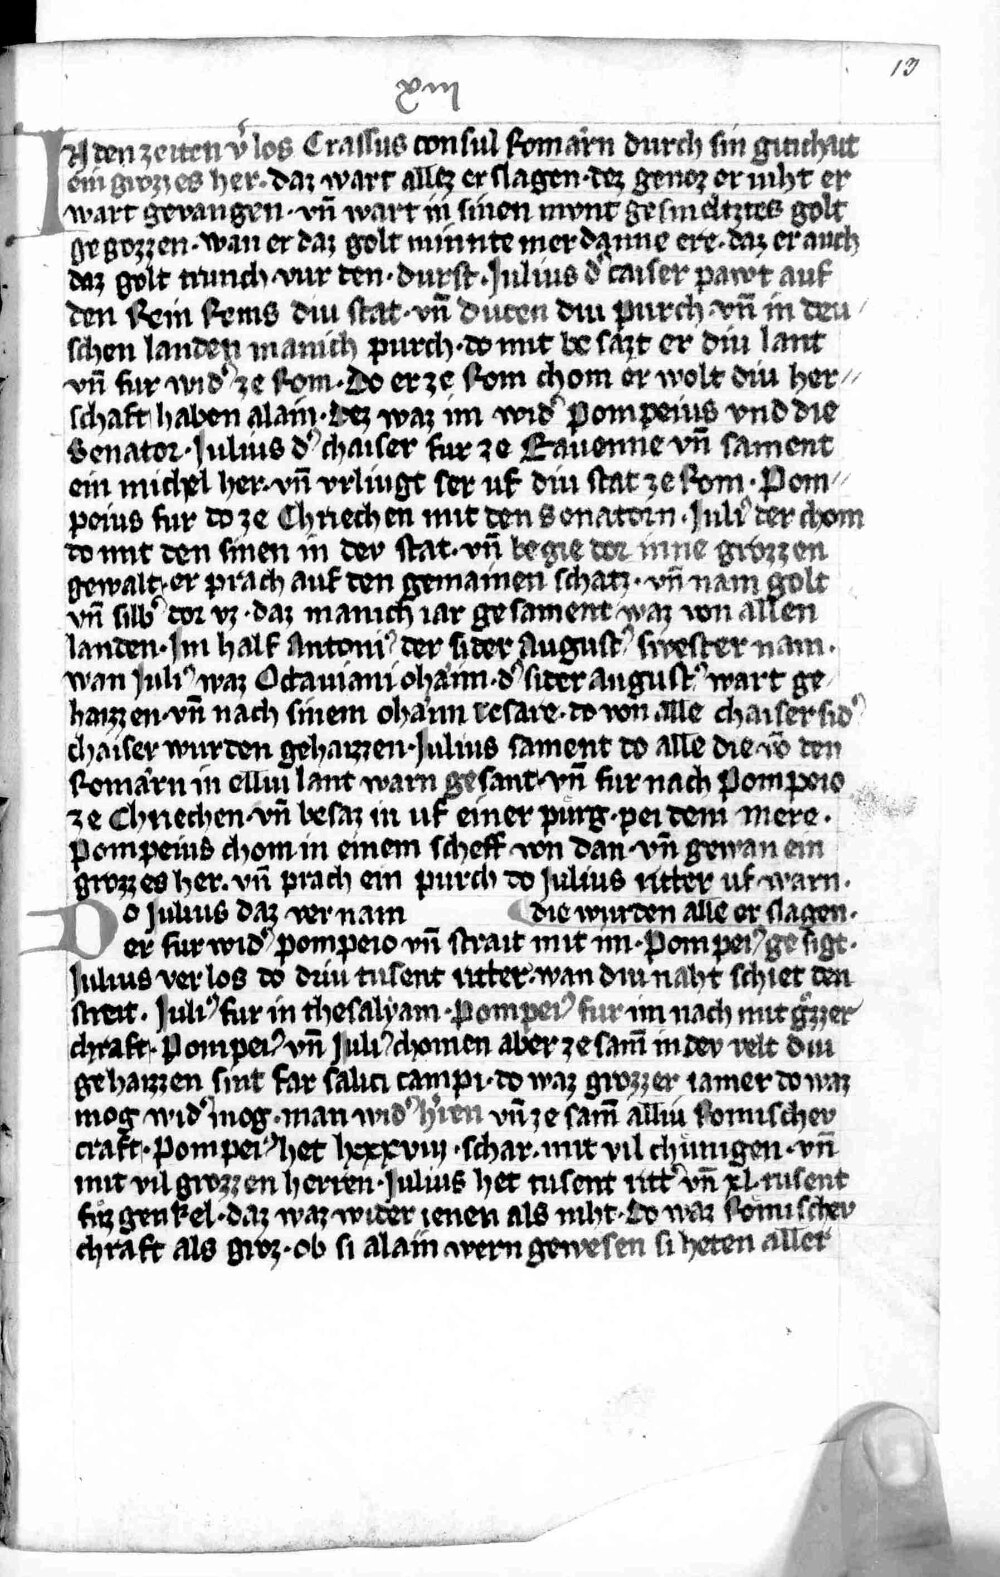 13
xiij
IN den zeiten v͛los Crassus consul Romårn durch sin gitichait
ein grozzes her · daz wart allez erslagen · dez genoz er niht er
wart gevangen · vn̄ wart in sinen mvnt gesmeltztes golt
gegozzen · wan er daz golt minnte mer danne ere · daz er auch
daz golt trunch · vur den · durst · Julius d͛ caiser pawt auf
den Rein Rems diu stat · vn̄ Duten diu purch · vn̄ in deu//
schen landen manich purch · do mit besazt er diu lant
vn̄ fur wid͛ ze Rom · Do er ze Rom chom er wolt diu her//
schaft haben alain · Dez waz im wid͛ Pompeius vnd die
Senator · Julius d͛ chaiser fur ze Rauenne vn̄ sament
ein michel her · vn̄ vrliugt ser uf diu stat ze Rom · Pom//
peius fur do ze Chriechen mit den Senatorn · Juli᾿ der chom
do mit den sinen in der stat · vn̄ begie dor inne grozzen
gewalt · er prach auf den gemainen schatz · vn̄ nam golt
vn̄ silb͛ dor vz · daz manich iar gesament waz von allen
landen · Im half Antoni᾿ der sider August᾿ swester nam ·
wan Juli᾿ waz Octauiani ohåim · d͛ sider august᾿ wart ge/
haizzen · vn̄ nach sinem ohåim cesare · do von alle chaiser sid͛
chaiser wurden gehaizzen · Julius sament do alle die vō den
Romårn in elliu lant warn gesant · vn̄ fur nach Pompeio
ze Chriechen · vn̄ besaz in uf einer purg · pei dem mere ·
Pompeius chom in einem scheff von dan · vn̄ gewan ein
grozzes her · vn̄ prach ein purch do Julius ritter uf warn ·
Do Julius daz vernam die wurden alle erslagen ·
er fur wid͛ pompeio vn̄ strait mit im · Pompei᾿ gesigt ·
Julius verlos do driu tusent ritter · wan diu naht schiet den
streit · Juli᾿ fur in thesalyam · Pompei᾿ fur im nach mit grozzer
chraft · Pompei᾿ vn̄ Juli᾿ chomen aber ze sam̄ in der velt diu
gehaizzen sint far salici campi · do waz grozzer iamer do waz
mog wid͛ mog · man wid͛ h͛ren vn̄ ze sam̄ alliu Romischer
craft · Pompei᾿ het lxxxviij · schar · mit vil chunigen · vn̄
mit vil grozzen herren · Julius het tusent ritt͛ vn̄ xl · tusent
fuzgenkel · daz waz wider ienen als niht · Do waz Romischer
chraft als groz · ob si alain wern gewesen si heten aller